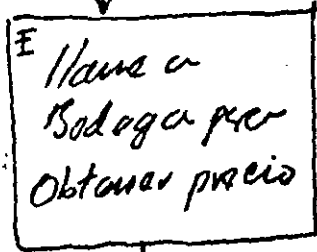 E
Llame a
Bodega para
Obtener precio